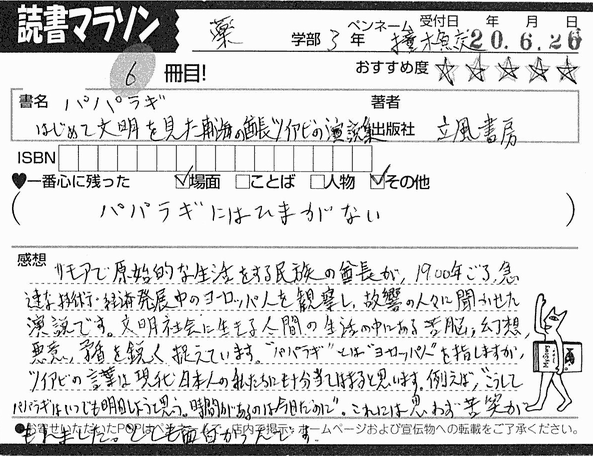 読書マラソン
薬 学部 3 年 ペンネーム 受付日 年 月 日
20.6.26
6 冊目! おすすめ度 ☆☆☆☆☆
書名 パパラギ 著者
はじめて文明を見た南海の酋長ツイアビの演説集 出版社 立風書房
ISBN
♥一番心に残った ☑場面 □ことば □人物 ☑その他
( パパラギにはひまがない )
感想
サモアで原始的な生活をする民族の酋長が、1900年ごろ、急
速な技術・経済発展中のヨーロッパ人を観察し、故郷の人々に聞かせた
演説です。文明社会に生きる人間の生活の中にある苦悩、幻想、
悪意、矛盾を鋭く捉えています。"パパラギ"とは"ヨーロッパ人"を指しますが、
ツイアビの言葉は現代日本人の私たちにも十分当てはまると思います。例えば、"こうして
パパラギはいつも明日しようと思う。時間があるのは今日だのに"。これには思わず苦笑が
もれました。とても面白かったです。
●お寄せいただいたPOPはペンネームで、店内で掲示・ホームページおよび宣伝物への転載をご了承ください。